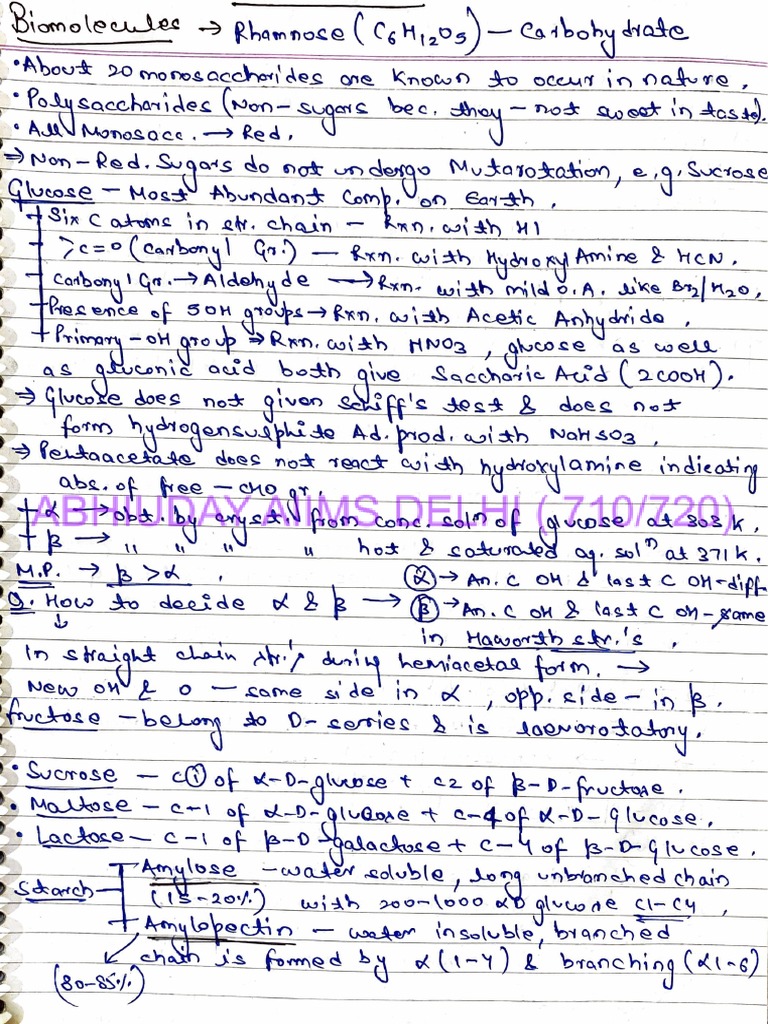 Biomolecules → Rhamnose (C6H12O5) - Carbohydrate
• About 20 monosaccharides are known to occur in nature.
• Polysaccharides (Non-sugars bec. they - not sweet in taste).
• All Monosacc. → Red.
⇒ Non-Red. Sugars do not undergo Mutarotation, e.g. Sucrose
Glucose - Most Abundant Comp. on Earth.
Six C atoms in str. chain - Rxn. with HI
>C=O (Carbonyl Gr.) - Rxn. with Hydroxyl Amine & HCN.
Carbonyl Gr. → Aldehyde → Rxn. with mild O.A. like Br2/H2O,
Presence of 5OH groups → Rxn. with Acetic Anhydride.
Primary -OH group ⇒ Rxn. with HNO3, glucose as well
as gluconic acid both give Saccharic Acid (2COOH).
⇒ Glucose does not given schiff's test & does not
form hydrogensulphite Ad. prod. with NaHSO3.
⇒ Pentaacetate does not react with hydroxylamine indicating
abs. of free -CHO gr.
ABHIUDAY AIIMS DELHI ( 710/720)
α → obt. by cryst. from conc. solⁿ of glucose at 303 k.
β → " " " " hot & saturated aq. solⁿ at 371 k.
M.P. → β > α.
α → An. C OH & last C OH - diff
Q. How to decide α & β → β → An. C OH & last C OH - same
in Haworth str.'s.
In straight chain str.'s during hemiacetal form. →
New OH & O - same side in α, opp. side - in β.
fructose - belong to D-series & is laevorotatory.
• Sucrose - C① of α-D-glucose + C2 of β-D-fructose.
• Maltose - C-1 of α-D-glucose + C-4 of α-D-glucose.
• Lactose - C-1 of β-D-galactose + C-4 of β-D-glucose.
Amylose - water soluble, long unbranched chain
Starch
(15-20%) with 200-1000 αD glucose C1-C4,
Amylopectin - water insoluble, branched
chain is formed by α(1-4) & branching (α1-6)
(80-85%)